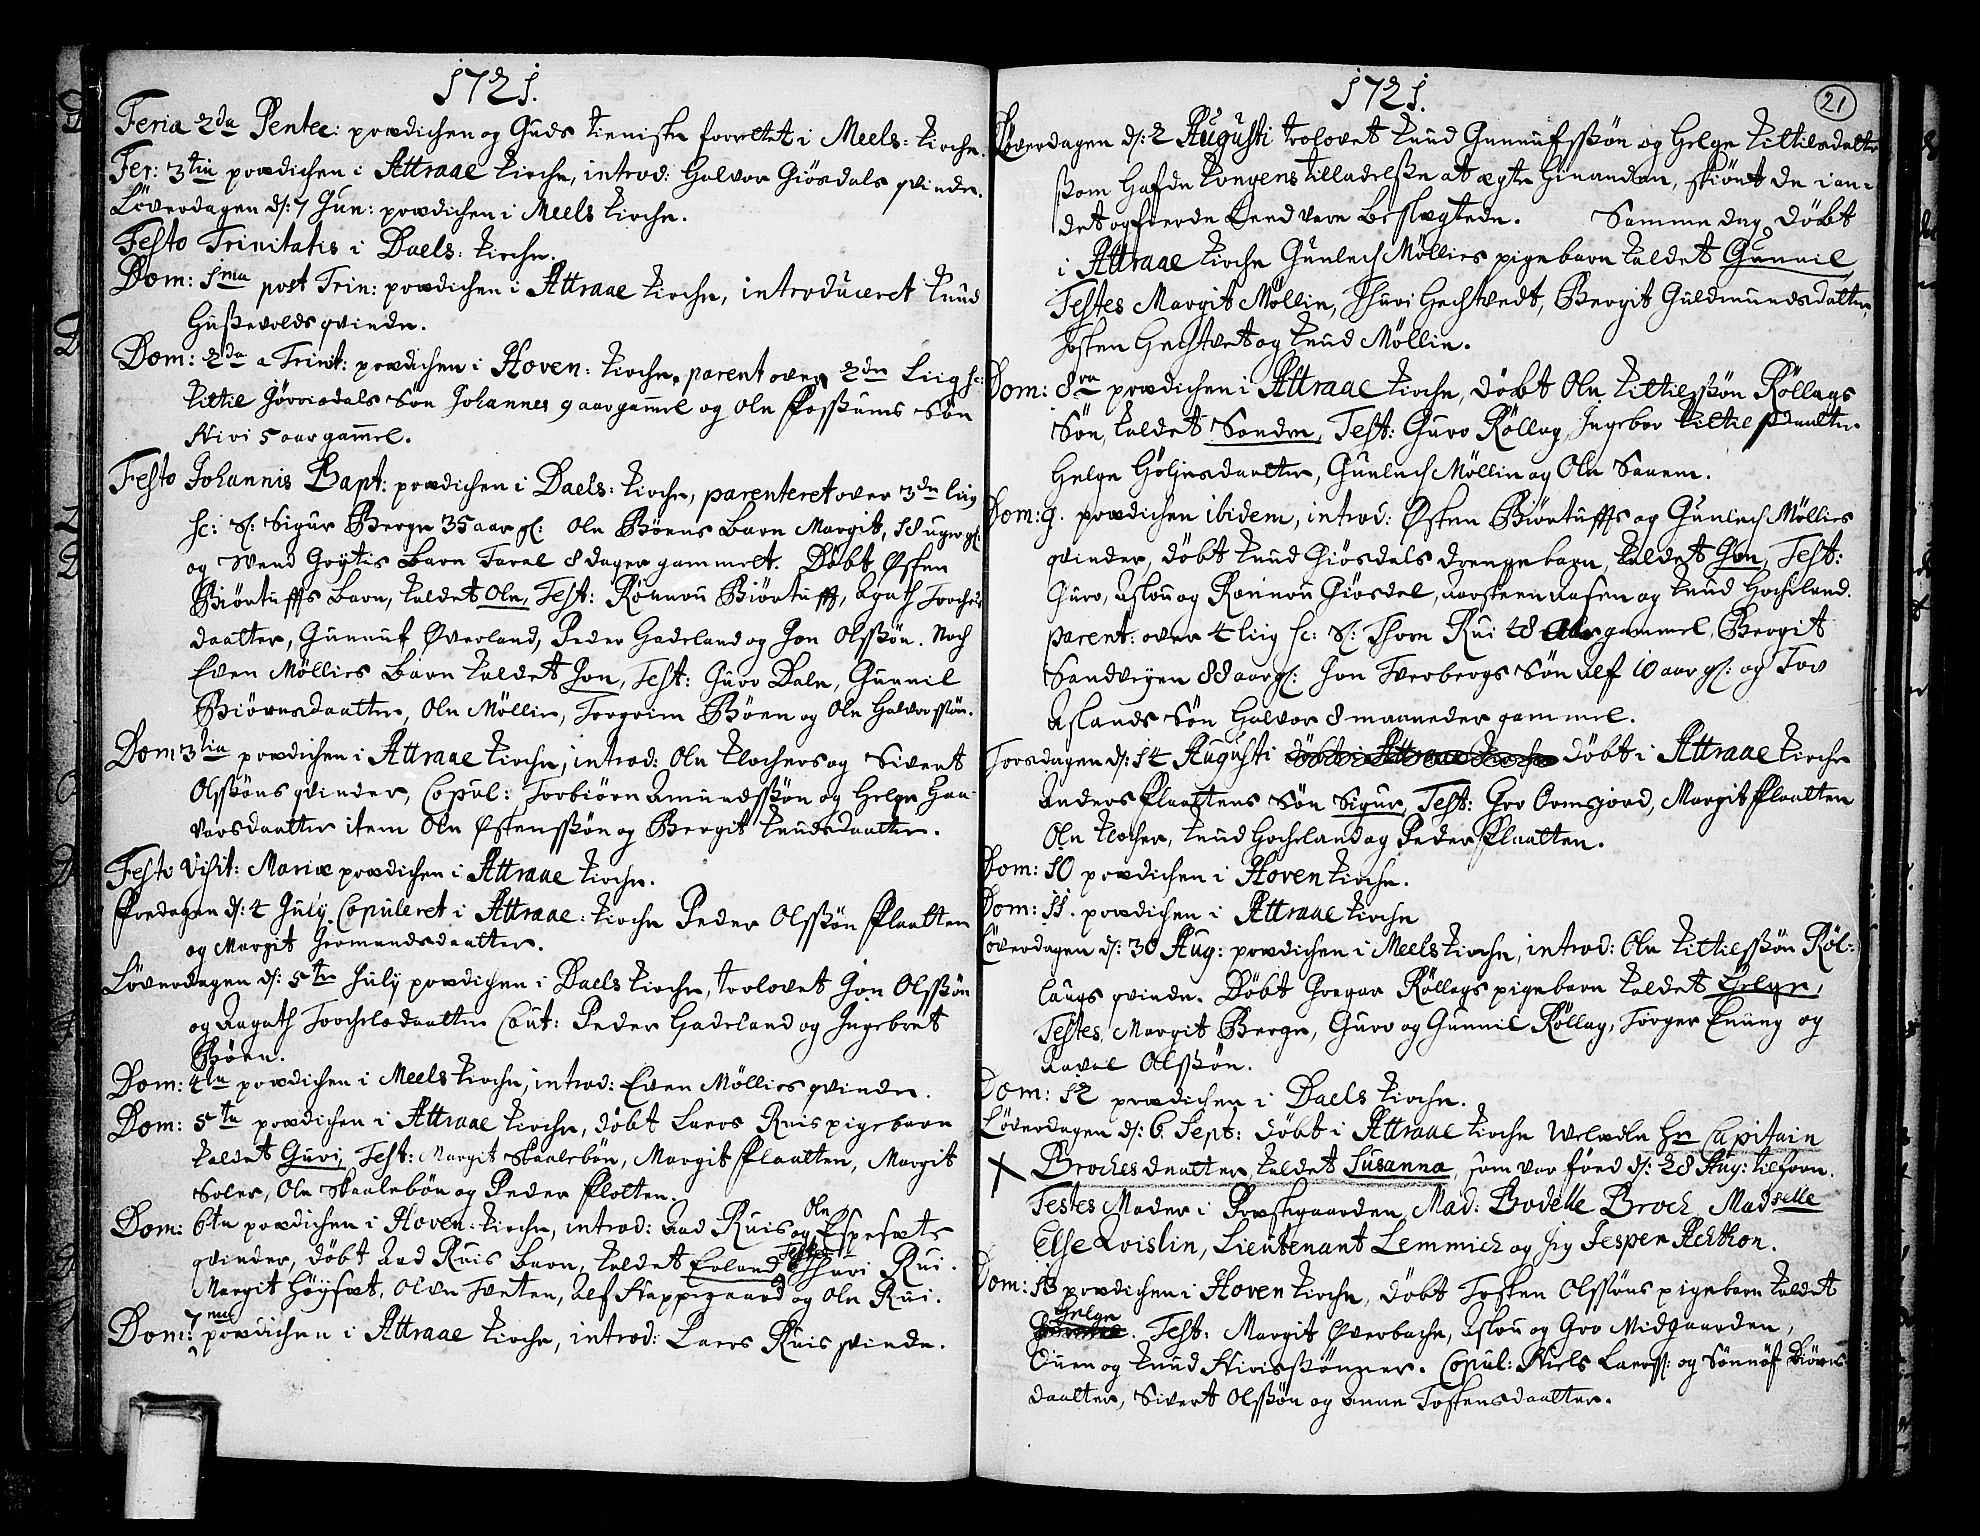 1721.
Feria 2da Pentec: prædichen og Guds tieniste forrettet i Meels: kirche.
Fer: 3tia prædichen i Attraae kirche, introd: Halvor Giösdals qvinde.
Löverdagen d: 7 Jun: prædichen i Meels kirche.
Festo Trinitatis i Daels: kirche.
Dom: 1ma post Trin: prædichen i Attraae kirche, introduceret Knud
Hussevolds qvinde.
Dom: 2da a Trinit: prædichen i Hoven: kirche, parent over 2de Liig sc:
Kittil Jörrisdals Sön Johannes 9 aar gamel og Ole Fossums Sön
Kiri 5 aar gamel.
Festo Johannis Bapt: prædichen i Daels: kirche, parenteret over 3de liig
sc: Sl: Sigur Berge 35 aar gl: Ole Böens Barn Margit, 18 uger gl:
og Svend Gröjtis Barn Taral 8 dager gammelt. Döbt Østen
Biörtuffts Barn, kaldet Ole, Test: Rönnou Biörtufft, Agath Torchels
daatter, Gunnuf Øverland, Peder Gadeland og Jon Olssön. Noch
Even Möllies Barn kaldet Jon, Test: Guro Dale, Gunnil
Biörnsdaatter, Ole Möllie, Torgrim Böen og Ole Halvorssön.
Dom 3tia prædichen i Attraae kirche, introd: Ole Klochers og Sivert
Olssöns qvinder, Copul: Torbiörn Amundssön og Helge Haa-
vorsdaatter item Ole Østenssön og Bergit Knudsdaatter.
Festo Visit: Mariæ prædichen i Attraae kirche.
Fredagen d: 4 July Copuleret i Attraae: kirche Peder Olssön Flaatten
og Margit Germundsdaatter.
Löverdagen d: 5te July prædigen i Daels kirche, trolovet Jon Olssön
og Aagath Torchelsdaatter Caut: Peder Gadeland og Ingebret
Böen.
Dom: 4ta prædichen i Meels kirche, introd: Even Möllies qvinde.
Dom: 5ta prædichen i Attraae kirche, döbt Laers Ruis pigebarn
kaldet Guri, Test: Margit Skaalebön, Margit Flaatten, Margit
Soler, Ole Skaalebön og Peder Flotten.
Dom: 6ta prædichen i Hoven: kirche, introd: Aad Ruis og Ole Espesets
qvinder, döbt Aad Ruis Barn, kaldet Erland Testes Thuri Rui.
Margit Höyset, Olen Tveten, Alf Kappegaard og Ole Rui.
Dom: 7ma prædichen i Attraae kirche, introd: Laers Ruis qvinde.
1721.
21
Löverdagen d: 2 Augusti trolovet Knud Gunnufssön og Helge Kittilsdatter
som hafde Kongens tilladelse at ægte hinanden, skiönt de i an-
det og fierde Leed vare beslegtede. Samme dag döbt
i Attraae kirche Gunlech Möllies pigebarn kaldet Gunnil
Testes Margit Möllie, Thuri Hechtvedt, Bergit Guldmundsdatter,
Tosten Hechtvet og Knud Möllie.
Dom: 8va prædichen i Attraae kirche, döbt Ole Kittilssön Röllags
Sön, kaldet Sondre, Test: Guro Röllag, Ingebor Kittilsdaatter
Helge Höljesdaatter, Gunlech Möllie og Ole Saaem.
Dom: 9. prædichen ibidem, introd: Østen Biörtuffts og Gunlech Möllies
qvinder, döbt Knud Giösdals drengebarn, kaldet Jon, Test:
Guro, Aslou og Rönnou Giösdel, Aarsteen Aasen og Knud Hocheland.
parent: over 4 liig sc: Sl: Thore Rui 48 Aar gammel, Bergit
Sandvigen 88 aar gl: Jon Tverbergs Sön Alf 10 aar gl: og Tov
Aslands Sön Halvor 8 maaneder gammel.
Torsdagen d: 14 Augusti döbt i Attraae kirche döbt i Attraae kirche
Anders Flaattens Sön Sigur, Test: Gro Ormsjord, Margit Flaatten
Ole Klocher, Knud Hocheland og Peder Flaatten.
Dom: 10 prædichen i Hoven kirche.
Dom: 11. prædichen i Attraae kirche
Löverdagen d: 30 Aug: prædichen i Meels kirche, introd: Ole Kittilssön Röl-
laugs qvinde. Döbt Gregar Röllags pigebarn kaldet Helge,
Testes, Margit Berge, Guro og Gunnil Röllag, Törger Enung og
Aavel Olssön.
Dom: 12 prædichen i Daels kirche.
Löverdagen d: 6 Sept: döbt i Attraae kirche Welædle Hr Capitain
X Broches daatter kaldet Susanna, som var föed d: 28 Aug: tilforn.
Testes Moder i Præstegaarden, Mad: Bodelle Broch, Madselle
Else Loislin, Lieutenant Lemmich og Sig Jesper Achthon.
Dom: 13 prædichen i Hoven kirche, döbt Tosten Olssöns pigebarn kaldet
Helge. Test: Margit Øverbache, Aslou og Gro Midgaarden,
Ouen og Knud Kirissönner. Copul: Niels Laerss: og Sönnöf Biörns
daatter, Sivert Olssön og Anne Tostensdaatter.